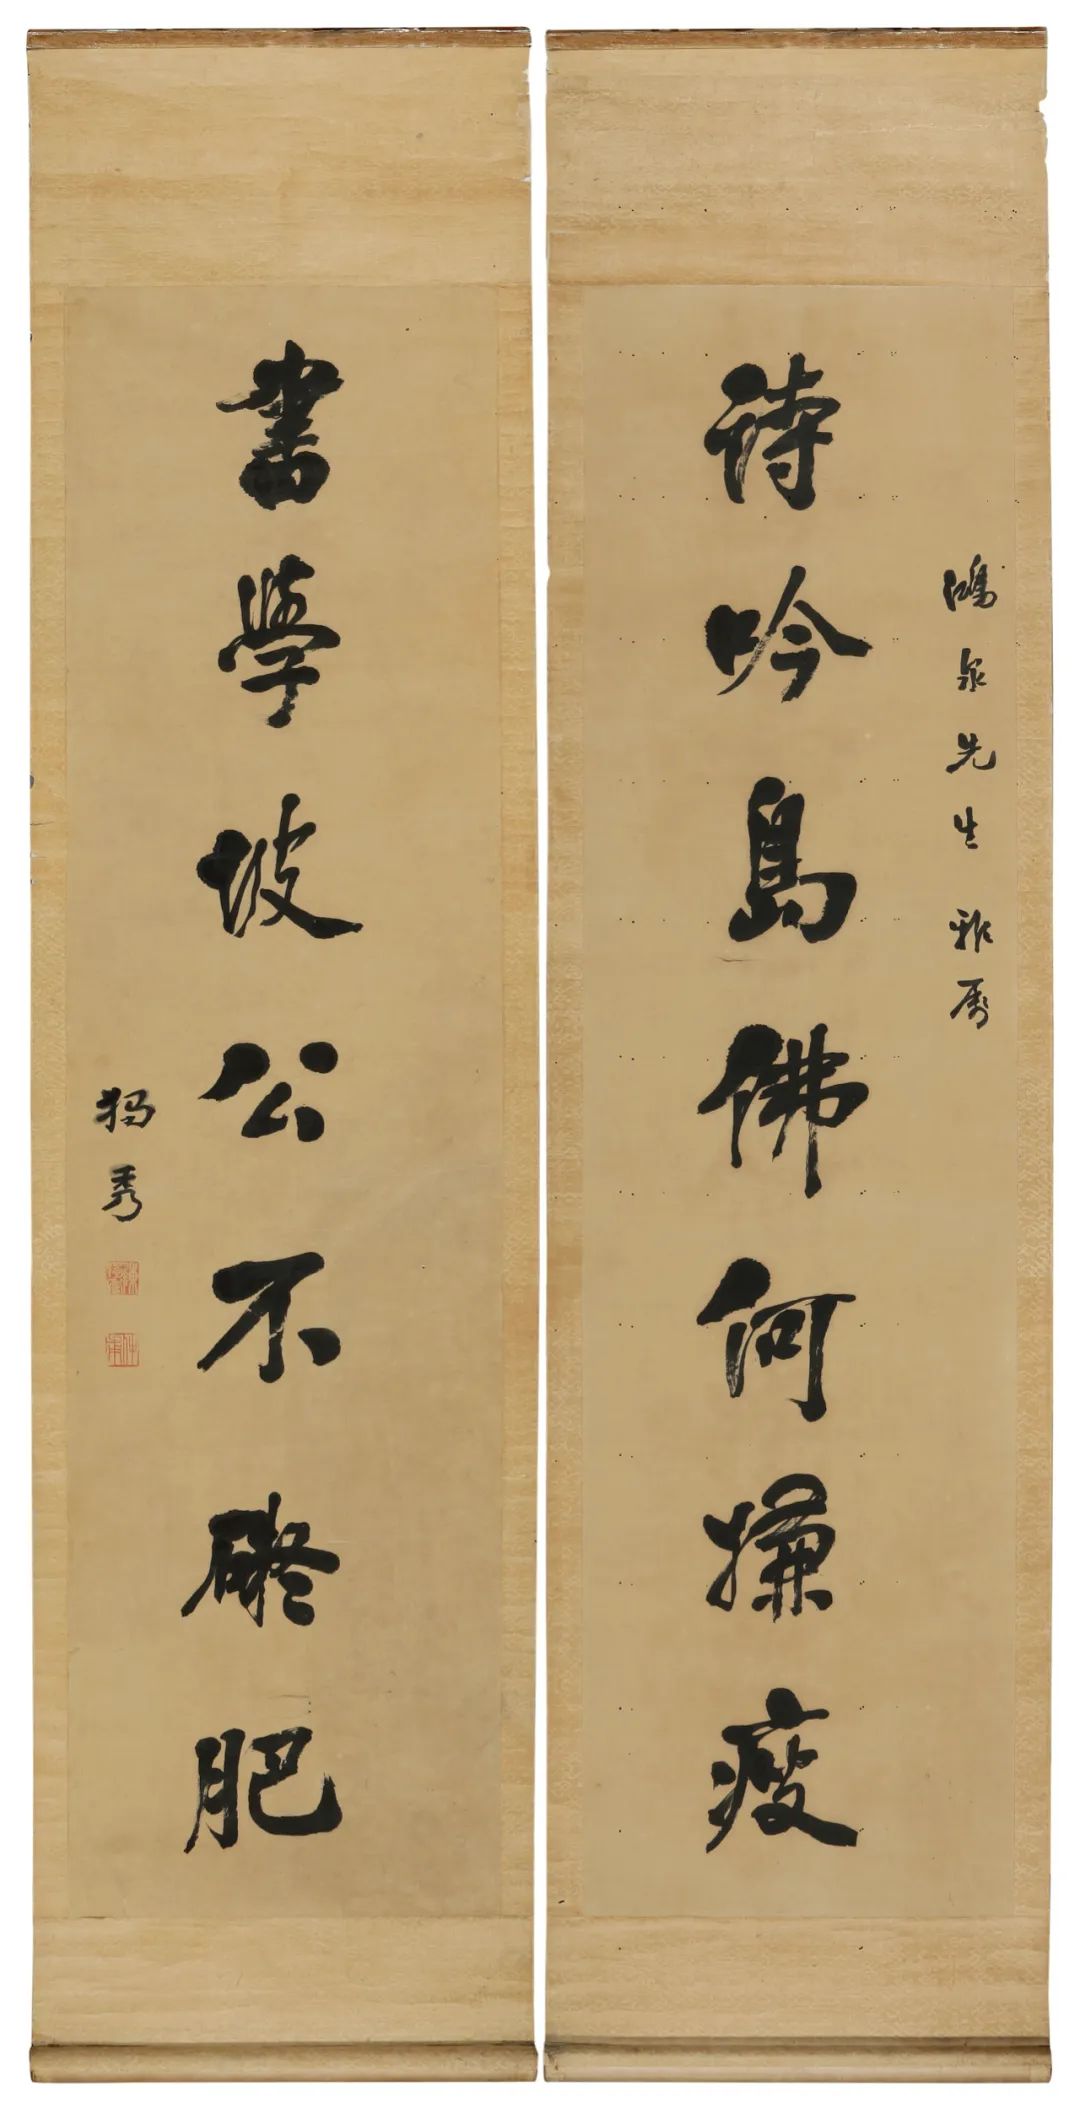 鴻泉先生雅屬
詩吟島佛何嫌瘦
書學坡公不礙肥
獨秀
仲甫